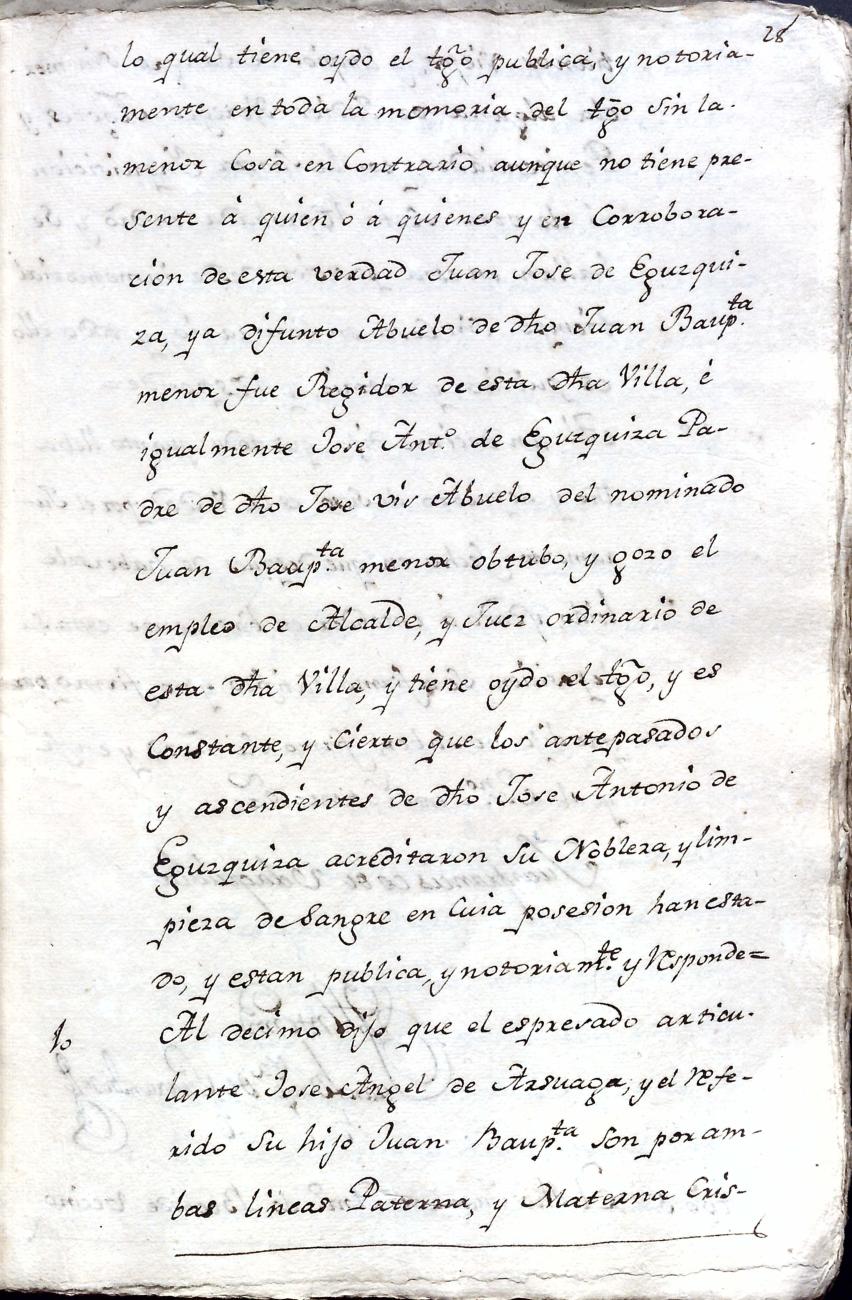 28
lo qual tiene oydo el tgõ publica, y notoria-
mente en toda la memoria del tgõ sin la
menor Cosa en Contrario aunque no tiene pre-
sente á quien ó á quienes y en Corrobora-
cion de esta verdad Juan Jose de Eguzqui-
za, ya difunto Abuelo de dho Juan Baup.ta
menor fue Regidor de esta dha Villa, é
igualmente Jose Ant.o de Eguzquiza Pa-
dre de dho Jose vis Abuelo del nominado
Juan Baup.ta menor obtubo, y gozo el
empleo de Alcalde, y Juez ordinario de
esta dha Villa, y tiene oydo el tgõ, y es
Constante, y Cierto que los antepasados
y ascendientes de dho Jose Antonio de
Eguzquiza acreditaron su Nobleza, y lim-
pieza de Sangre en Cuia posesion han esta-
do, y estan publica, y notoriam.te y responde=
10 Al decimo dijo que el espresado articu-
lante Jose Angel de Arsuaga, y el refe-
rido su hijo Juan Baup.ta son por am-
bas lineas Paterna, y Materna Cris-